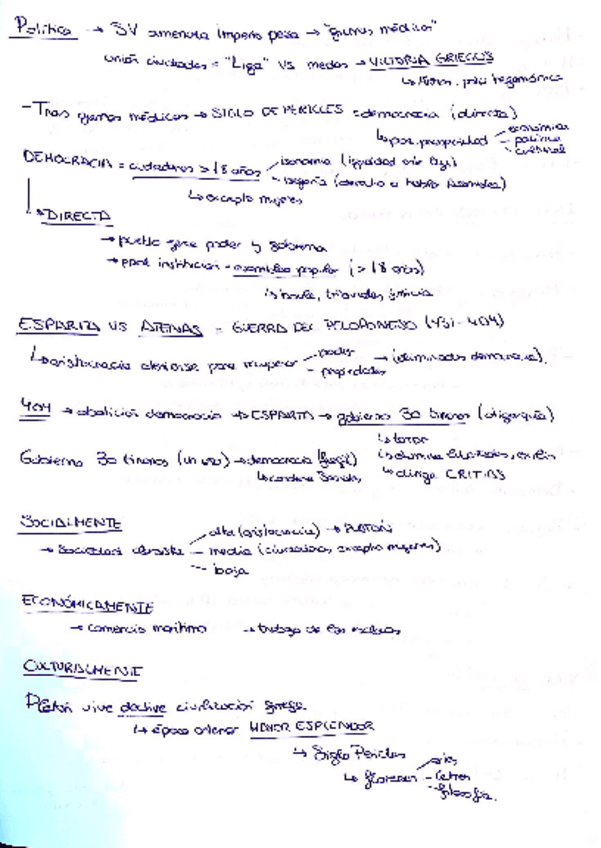 Política → SV amenaza Imperio persa → "guerras médicas"
unión ciudades = "Liga" vs medos → VICTORIA GRIEGOS
↳ Atenas, polis hegemónica
- Tras guerras médicas → SIGLO DE PERICLES = democracia (directa)
↳ por. prosperidad – económica
– política
– cultural
DEMOCRACIA = ciudadanos > 18 años – isonomía (igualdad ante ley)
– isegoría (derecho a hablar Asamblea)
↳ excepto mujeres
→ DIRECTA
→ pueblo ejerce poder y gobierna
→ ppal institución = asamblea popular (> 18 años)
↳ boule, tribunales justicia
ESPARTA VS ATENAS = GUERRA DEL PELOPONESO (431-404)
↳ aristocracia ateniense para recuperar – poder → (eliminados democracia)
– propiedades
404 → abolición democracia → ESPARTA → gobierno 30 tiranos (oligarquía)
↳ terror
Gobierno 30 tiranos (un año) → democracia (frágil) ↳ elimina libertades, exilio
↳ condena Sócrates ↳ dirige CRITIAS
SOCIALMENTE
→ Sociedad clasista – alta (aristocracia) → PLATÓN
– media (ciudadanos, excepto mujeres)
– baja
ECONÓMICAMENTE
→ comercio marítimo → trabajo de los esclavos
CULTURALMENTE
Platón vive declive civilización griega
↳ época anterior MAYOR ESPLENDOR
↳ Siglo Pericles
↳ florecen – artes
– letras
– filosofía.